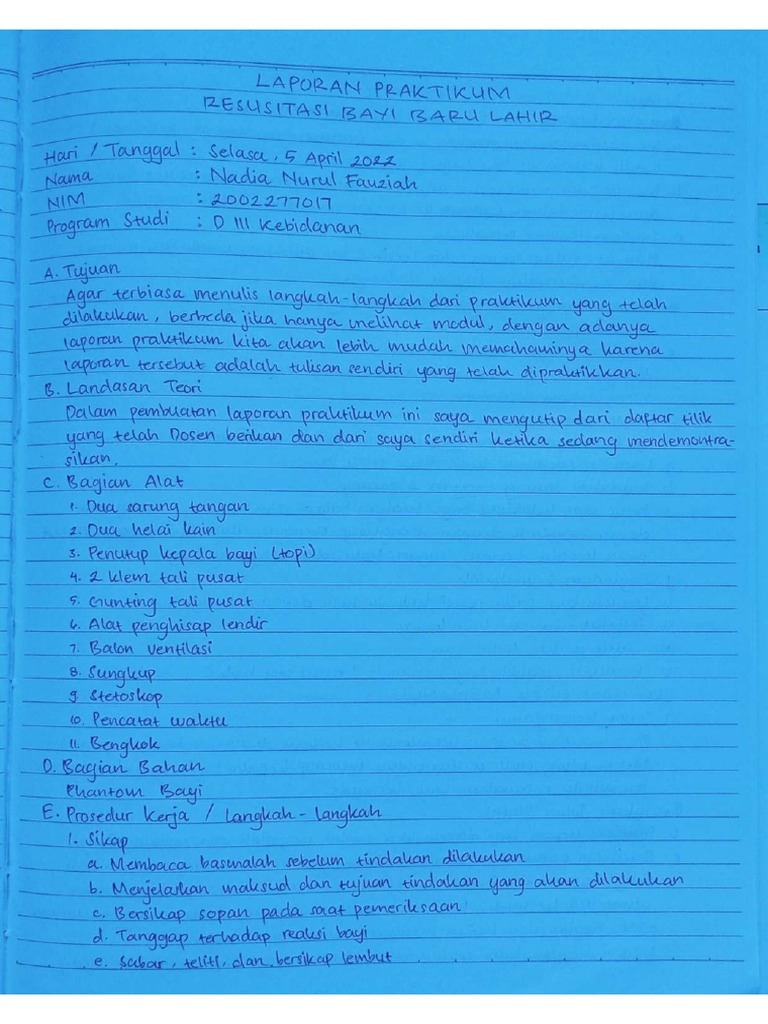 LAPORAN PRAKTIKUM
RESUSITASI BAYI BARU LAHIR
Hari / Tanggal : Selasa, 5 April 2022
Nama : Nadia Nurul Fauziah
NIM : 2002277017
Program Studi : D III Kebidanan
A. Tujuan
Agar terbiasa menulis langkah-langkah dari praktikum yang telah
dilakukan, berbeda jika hanya melihat modul, dengan adanya
laporan praktikum kita akan lebih mudah memahaminya karena
laporan tersebut adalah tulisan sendiri yang telah dipraktikkan.
B. Landasan Teori
Dalam pembuatan laporan praktikum ini saya mengutip dari daftar tilik
yang telah Dosen berikan dan dari saya sendiri ketika sedang mendemontra-
sikan.
C. Bagian Alat
1. Dua sarung tangan
2. Dua helai kain
3. Penutup kepala bayi (topi)
4. 2 klem tali pusat
5. Gunting tali pusat
6. Alat penghisap lendir
7. Balon ventilasi
8. Sungkup
9. Stetoskop
10. Pencatat waktu
11. Bengkok
D. Bagian Bahan
Phantom Bayi
E. Prosedur Kerja / Langkah - langkah
1. Sikap
a. Membaca basmalah sebelum tindakan dilakukan
b. Menjelaskan maksud dan tujuan tindakan yang akan dilakukan
c. Bersikap sopan pada saat pemeriksaan
d. Tanggap terhadap reaksi bayi
e. Sabar, teliti, dan bersikap lembut